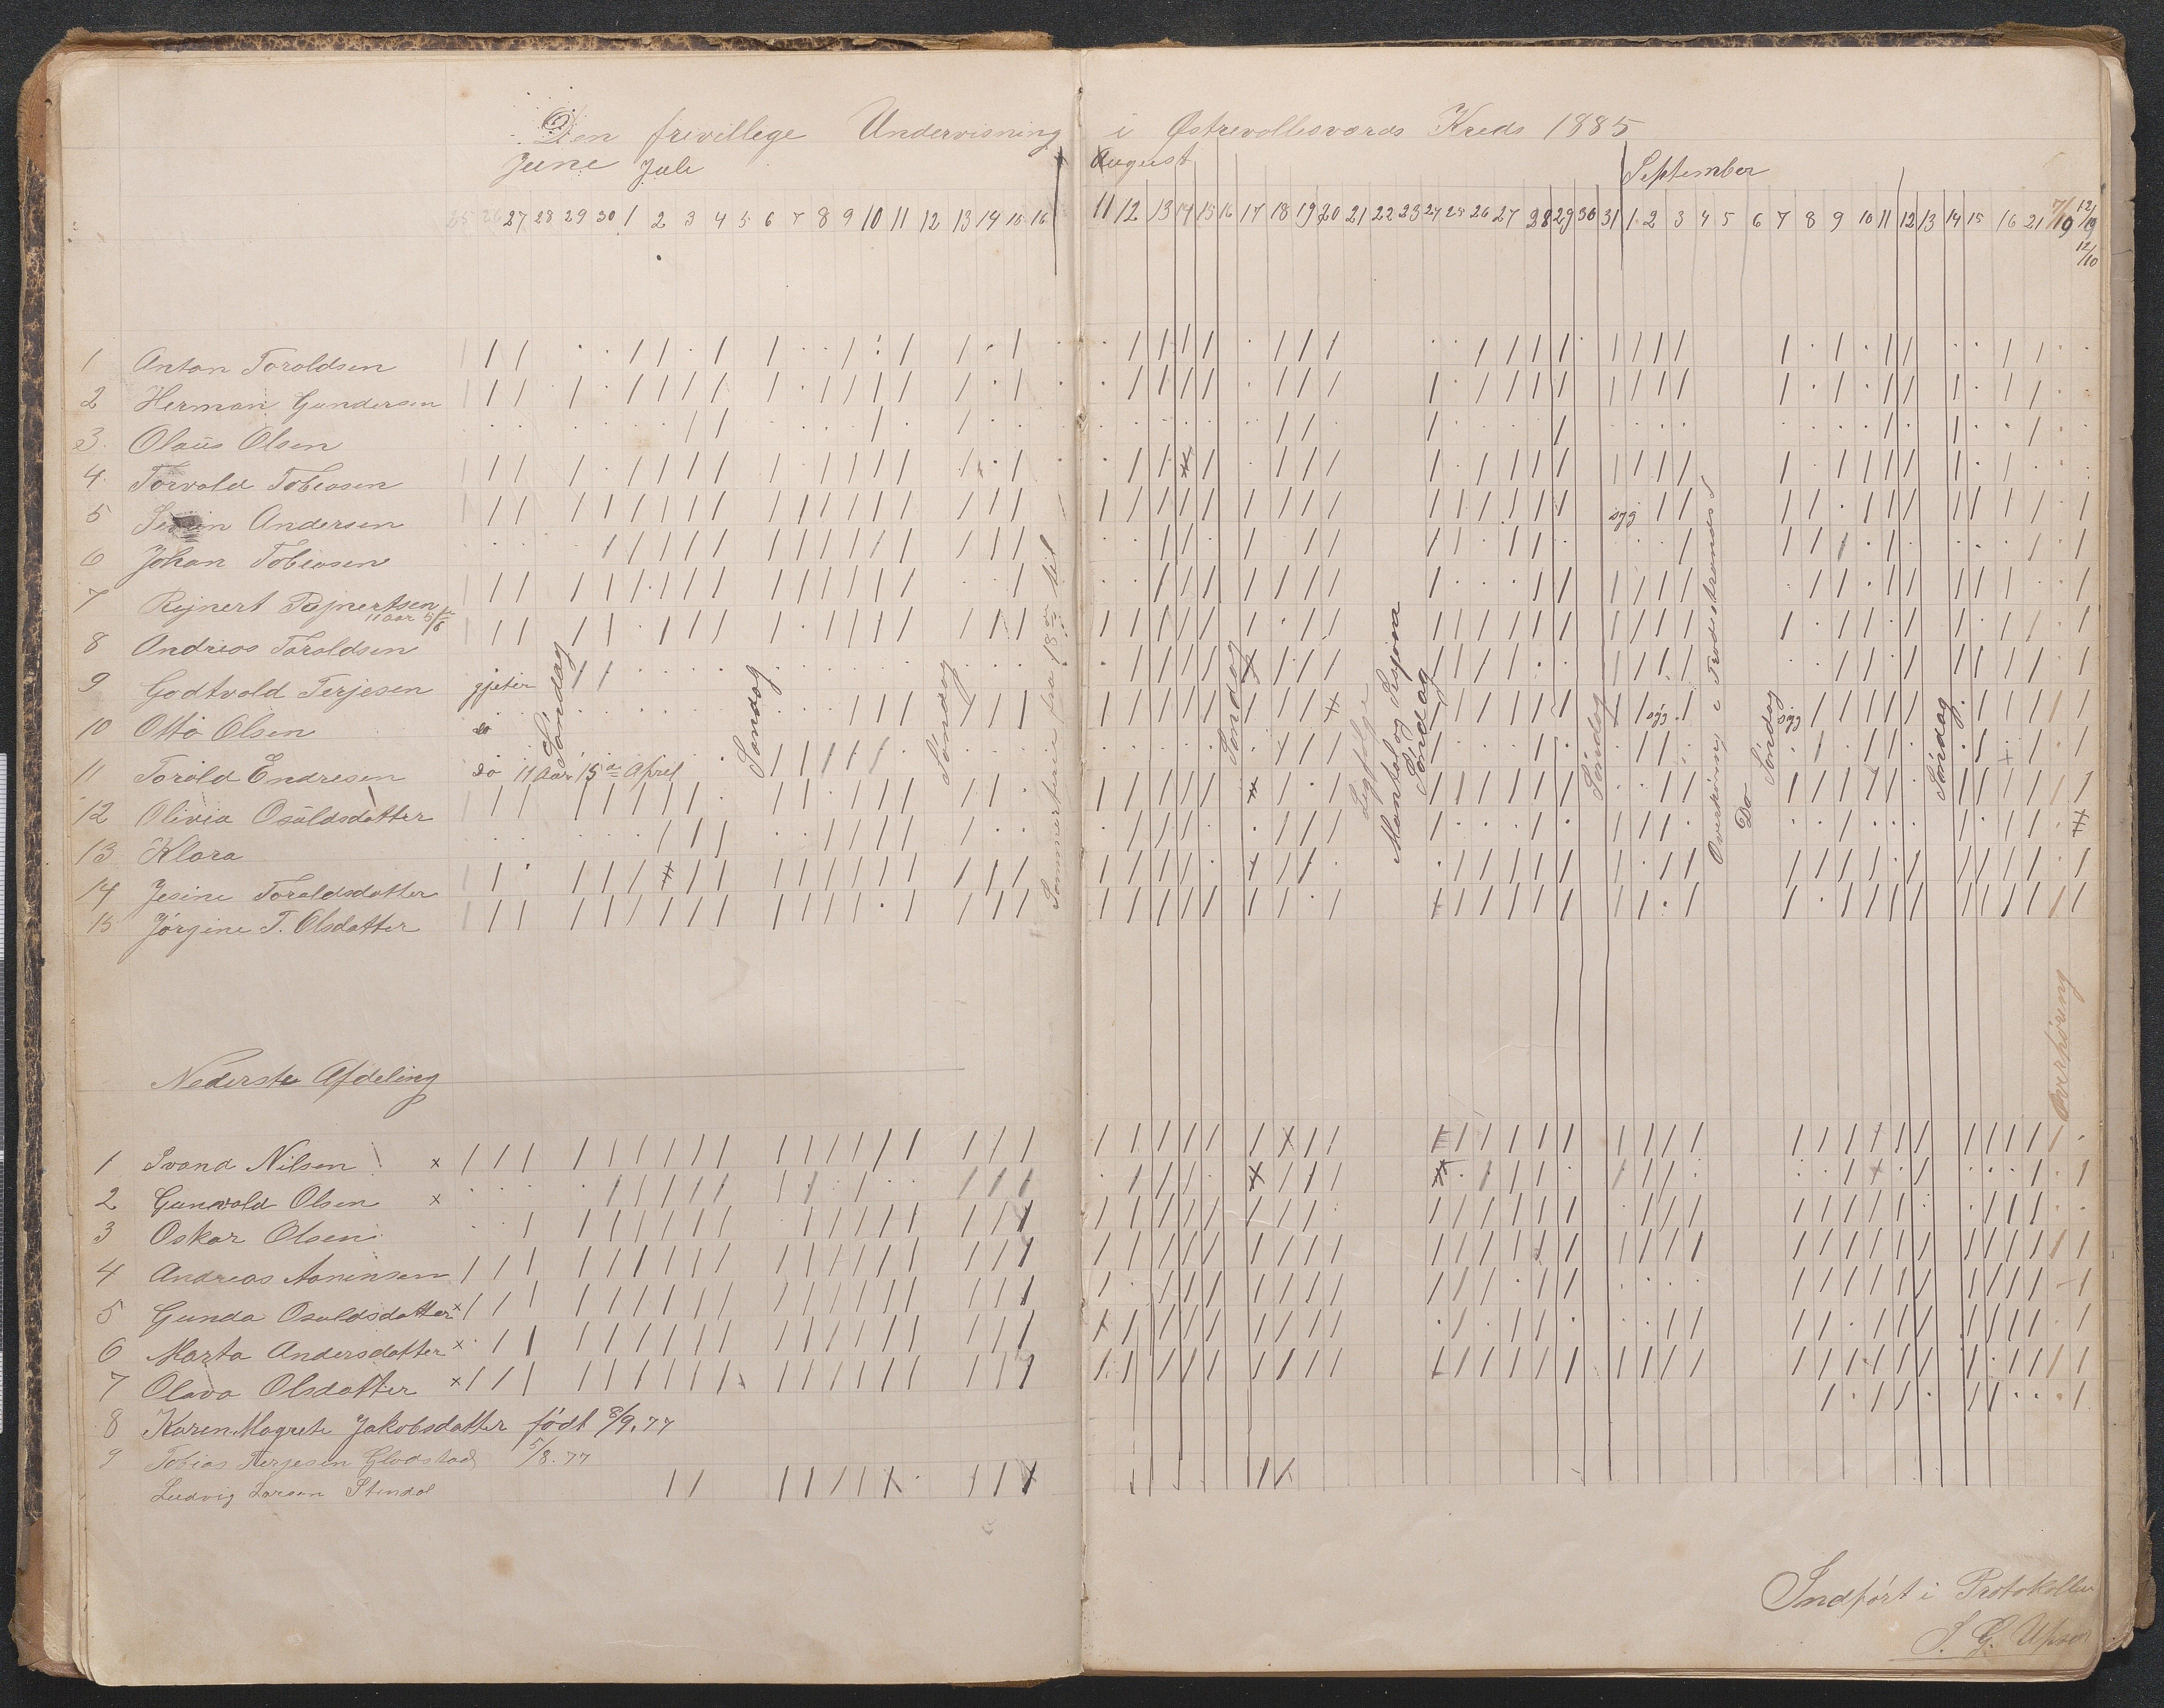 Den frivillege Undervisning i Østrevollesværds Kreds 1885
June Juli August September
25 26 27 28 29 30 1 2 3 4 5 6 7 8 9 10 11 12 13 14 15 16 11 12 13 14 15 16 17 18 19 20 21 22 23 24 25 26 27 28 29 30 31 1 2 3 4 5 6 7 8 9 10 11 12 13 14 15 16 21 7/10 12/10
12/10
1 Anton Toroldsen
2 Herman Gundersen
3. Olaus Olsen
4. Torvald Tobiasen
5 Andersen syg
6 Johan Tobiasen
7 Rejnert Rejnertsen
11 Aar 5/6
8 Andreas Toroldsen
9 Godtvold Terjesen gjeter
10 Otto Olsen do syg syg
11 Torold Endresen do 11 Aar 15de April
12 Olivia Osuldsdatter
13 Klara
14 Jesine Toroldsdatter
15 Jørgine T. Olsdatter
Søndag
Søndag
Søndag
Sommerferie fra 18de til
Søndag
Ligfølge
Mantal og Sesjon
Søndag
Søndag
Overhøring i Do
Søndag
Søndag
Overhøring
Nederste Afdeling
1 Svend Nilsen x
2 Gunvold Olsen x
3 Oskar Olsen
4 Andreas Aaninsen
5 Gunda Osuldsdatter x
6 Marta Andersdatter x
7 Olava Olsdatter x
8 Karen Magrete Jakobsdatter født 8/9.77
9 Tobias Terjesen Glodstad 5/8.77
Ludvig Larsen Stendal
Indført i Protokollen